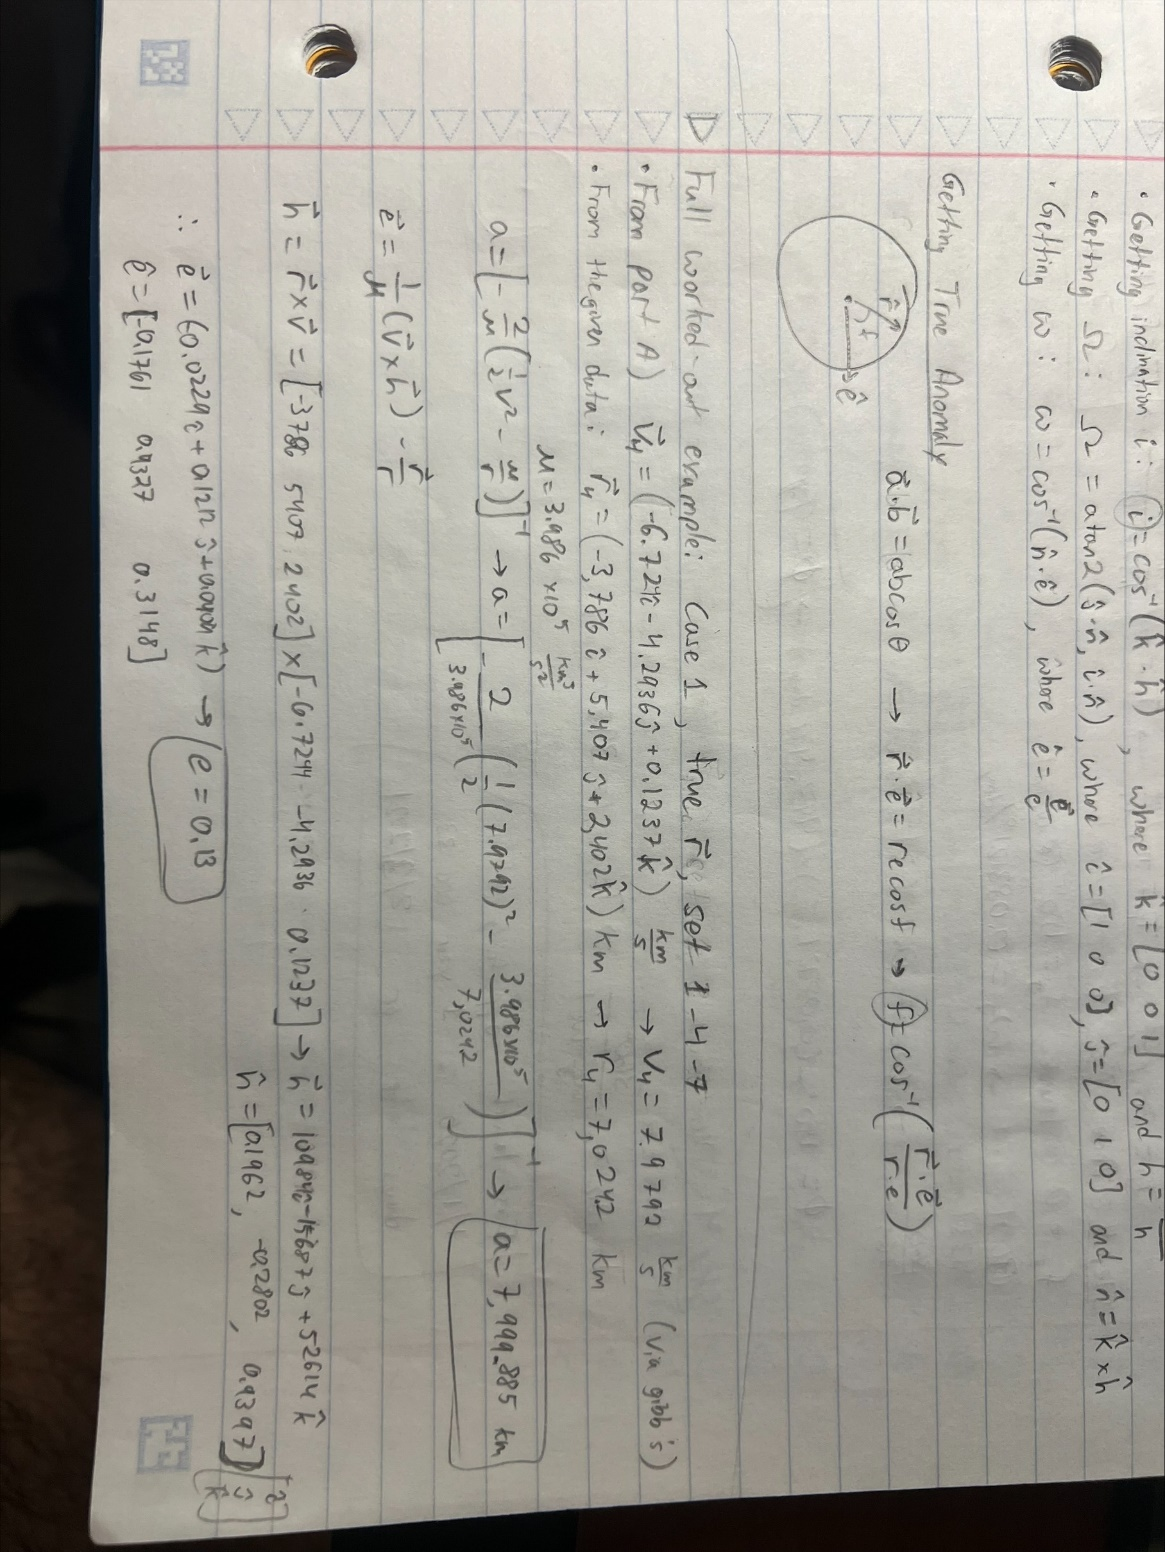 · Getting inclination i : i = cos⁻¹(k̂ · ĥ) , where k̂ = [0 0 1] and ĥ =
· Getting Ω : Ω = atan2(ĵ·n̂, î·n̂) , where î = [1 0 0], ĵ = [0 1 0] and n̂ = k̂ × ĥ
· Getting ω : ω = cos⁻¹(n̂ · ê) , where ê = e⃗/e
Getting True Anomaly
a⃗·b⃗ = abcosθ → r⃗·e⃗ = recosf → f = cos⁻¹(r⃗·e⃗/r·e)
r⃗ f
ê
Full worked-out example: Case 1, true r⃗, set 1-4-7
· From part A) v⃗₄ = (-6.724î - 4.2936ĵ + 0.1237k̂) km/s → v₄ = 7.9792 km/s (via gibb's)
· From the given data: r⃗₄ = (-3,786î + 5,407ĵ + 2,402k̂) km → r₄ = 7,024.2 km
μ = 3.986 ×10⁵ km³/s²
a = [-2/μ(½v² - μ/r)]⁻¹ → a = [-2/3.986×10⁵ (1/2(7.9792)² - 3.986×10⁵/7,024.2)]⁻¹ → a = 7,999.885 km
e⃗ = 1/μ(v⃗ × h⃗) - r⃗/r
h⃗ = r⃗×v⃗ = [-3786 5407 2402] × [-6.7244 -4.2936 0.1237] → h⃗ = 10984î - 15687ĵ + 52614k̂
ĥ = [0.1962, -0.2802, 0.9397] [î ĵ k̂]
∴ e⃗ = (-0.0229î + 0.1212ĵ + 0.0409k̂) → e = 0.13
ê = [-0.1761 0.9327 0.3148]